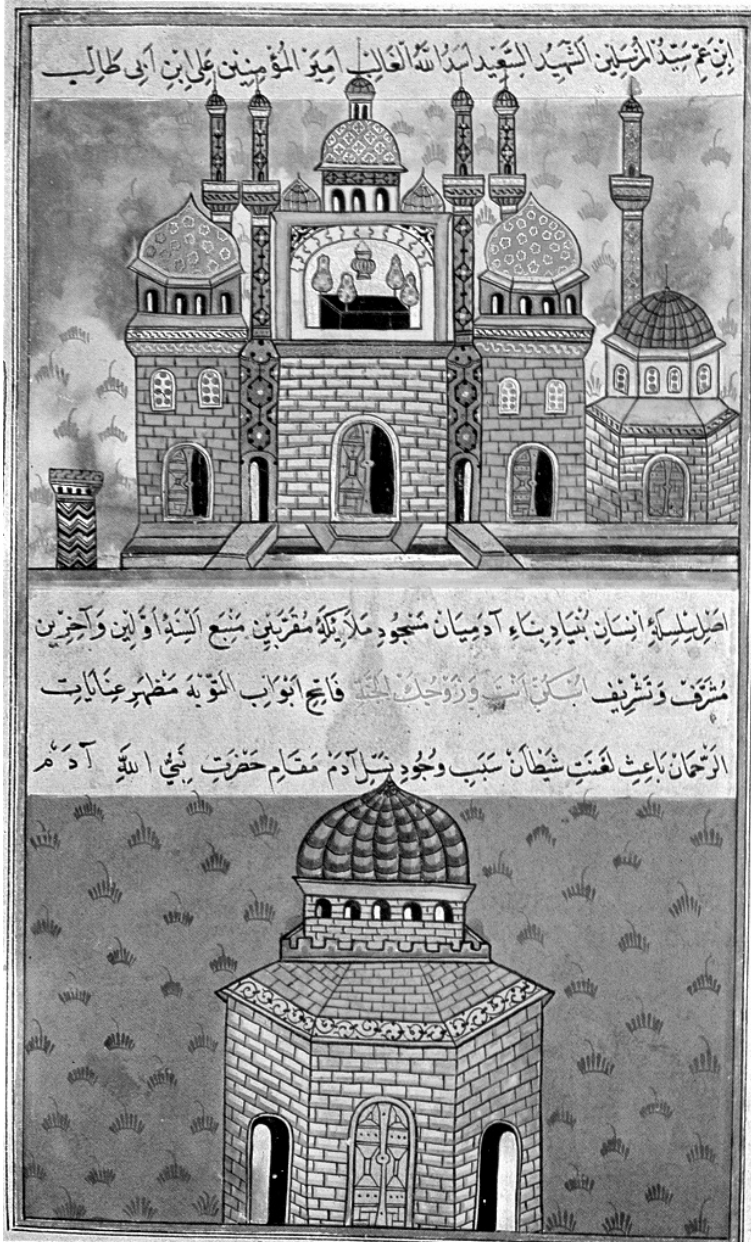 اِبْنِ عَمِّ سَيِّدُ الْمُرْسَلِينَ اَلشَّهِيدُ السَّعِيد اَسَدُ اللَّهُ الْغَالِبْ اَمِيرَ الْمُؤْمِنِين عَلِى اِبْنِ اَبِى طَالِبْ
اَصْلِ سِلْسِلَهٔ اِنْسَان بُنْيَادِ بِنَاءِ آدَمِيَان مَسْجُودِ مَلَائِكَهٔ مُقَرَّبِينْ مَنْبَعِ اَلْسِنَهٔ اَوَّلِين وَآخِرِين
مُشَرَّفْ وَتَشْرِيفِ اُسْكُنْ اَنْتَ وَزَوْجُكَ الْجَنَّةَ فَاتِحِ اَبْوَابِ التَّوْبَهْ مَظْهَرِ عِنَايَاتِ
الرَّحْمَانْ بَاعِثِ لَعْنَتِ شَيْطَانْ سَبَبِ وُجُودِ نَسْلِ آدَمْ مَقَامِ حَضْرَتِ نَبِىُّ اللَّهِ آدَمْ